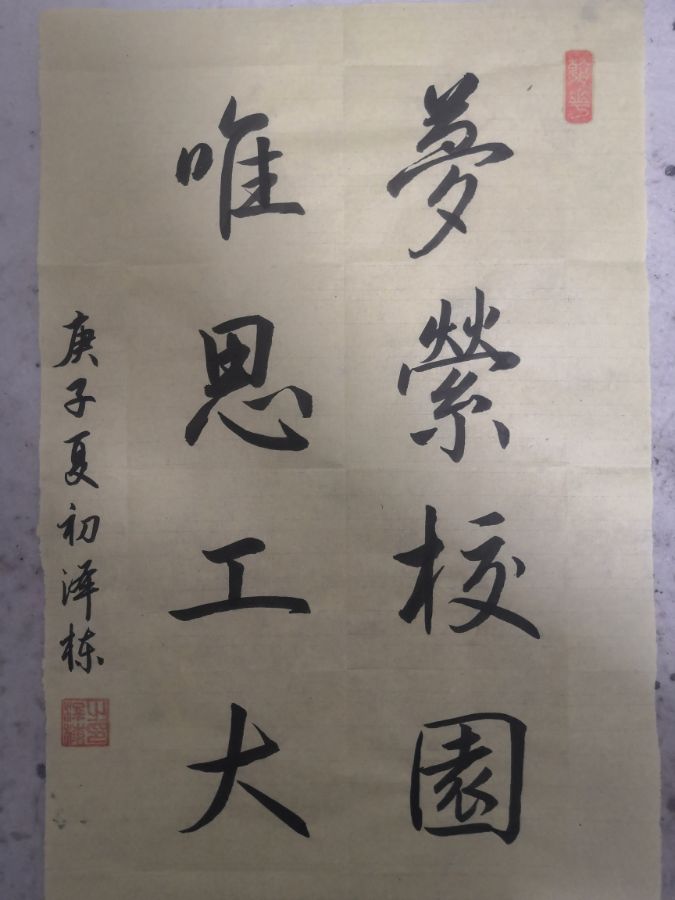 夢縈校園
唯思工大
庚子夏初泽栋